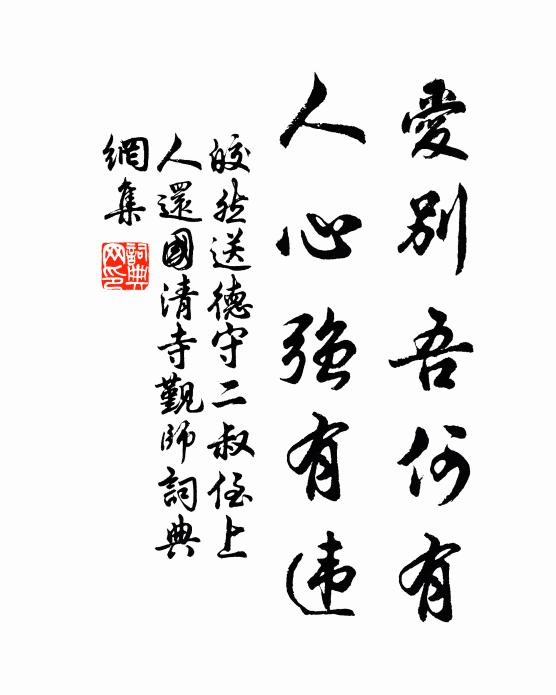 愛別吾何有
人心強有违
皎然送德守二叔侄上
人還國清寺觐師詞典
網集
詞典网印